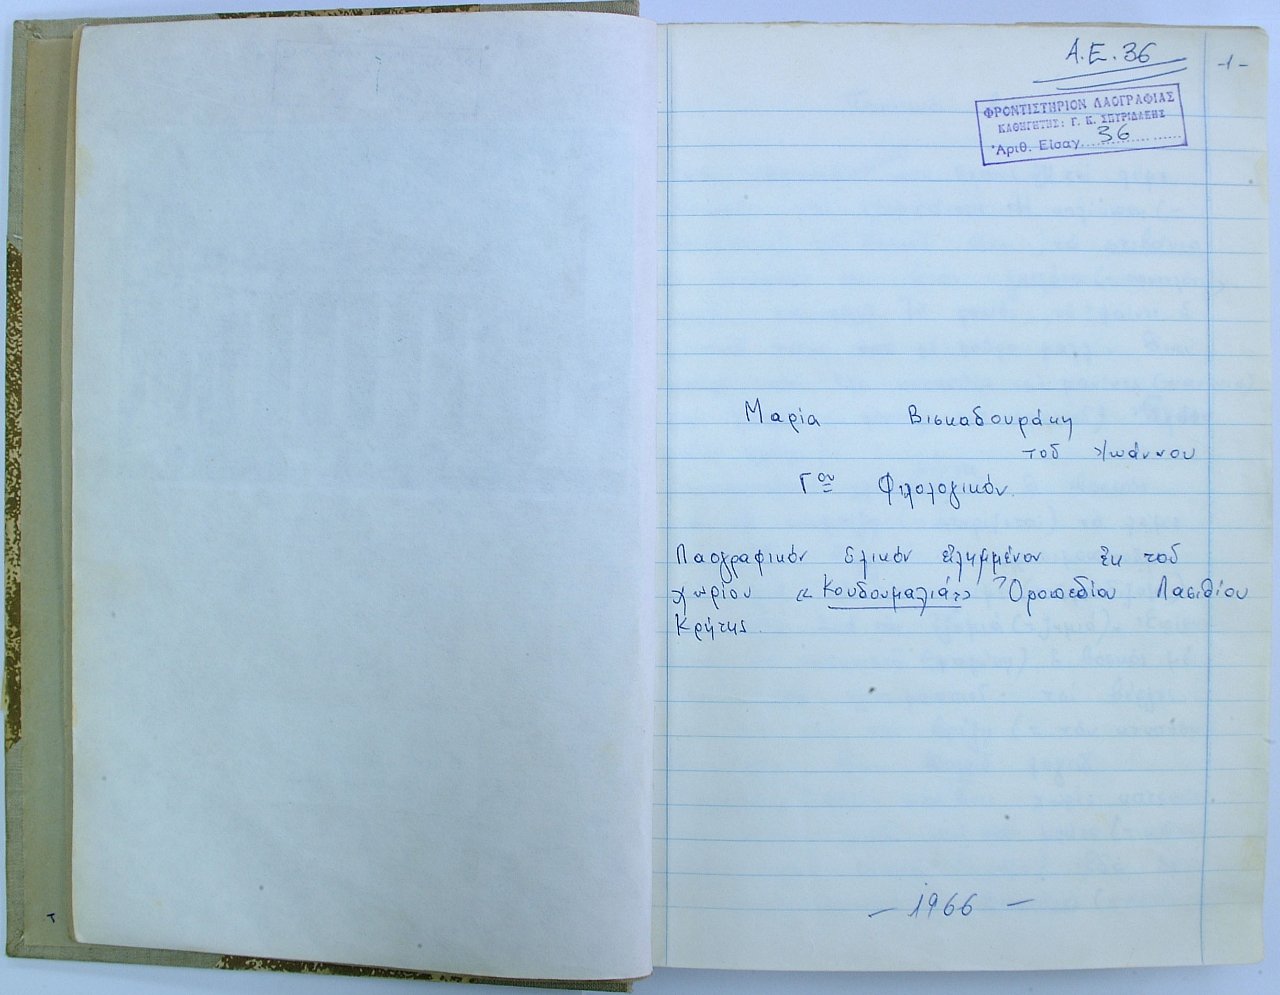 Α.Ε. 36
-1-
ΦΡΟΝΤΙΣΤΗΡΙΟΝ ΛΑΟΓΡΑΦΙΑΣ
ΚΑΘΗΓΗΤΗΣ: Γ. Κ. ΣΠΥΡΙΔΑΚΗΣ
Ἀριθ. Εἰσαγ. 36
Μαρία Βισκαδουράκη
τοῦ Ἰωάννου
Γον Φιλολογικόν.
Λαογραφικόν ὑλικόν εἰλημμένον ἐκ τοῦ
χωρίου «Κουδουμαλιά» Ὀροπεδίου Λασιθίου
Κρήτης.
- 1966 -